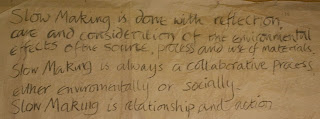 Slow Making is done with reflection,
care and consideration of the environmental
effects of the source, process and use of materials.
Slow Making is always a collaborative process
either environmentally or socially.
Slow Making is relationship and action